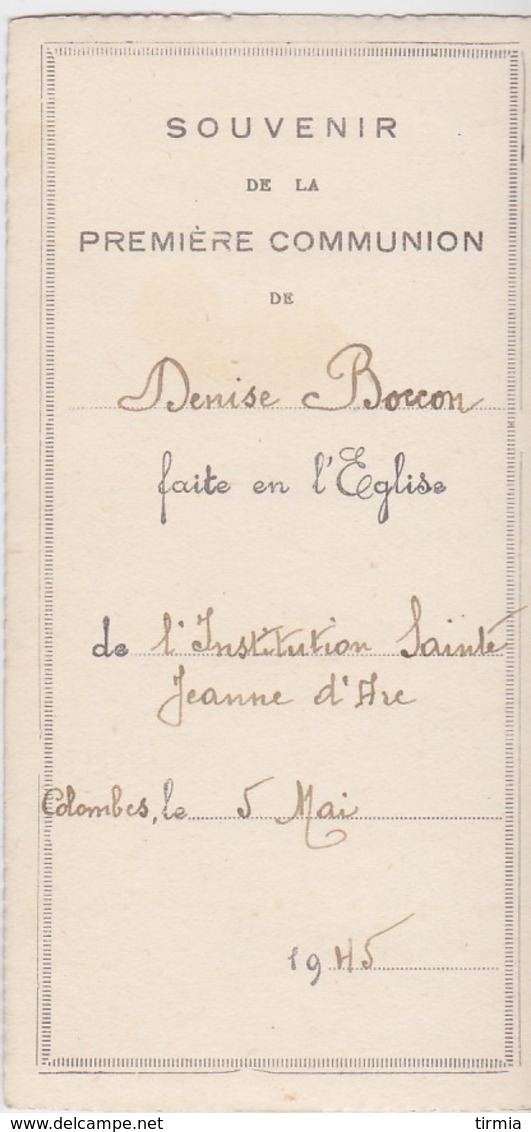 SOUVENIR
DE LA
PREMIÈRE COMMUNION
DE
Denise Boccon
faite en l'Eglise
de l'Institution Sainte
Jeanne d'Arc
Colombes, le 5 Mai
1945
© tirmia